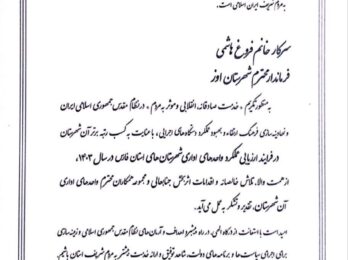 به مردم شریف ایران اسلامی است.
سرکار خانم فروغ هاشمی
فرماندار محترم شهرستان اوز
به منظور تکریم، خدمت صادقانه، انقلابی و موثر به مردم، در نظام مقدس جمهوری اسلامی ایران
و نهادینه سازی فرهنگ ارتقاء و بهبود عملکرد دستگاه‌های اجرایی، با عنایت به کسب رتبه برتر آن شهرستان
در فرایند ارزیابی عملکرد واحدهای اداری شهرستان‌های استان فارس در سال ۱۴۰۳
از همت والا، تلاش خالصانه و اقدامات اثربخش جنابعالی و مجموعه همکاران محترم واحدهای اداری
آن شهرستان، تقدیر و تشکر به عمل می‌آید.
امید است با استعانت از درگاه الهی، در راه پیشبرد اهداف و آرمان‌های نظام مقدس جمهوری اسلامی و زمینه سازی
برای اجرای سیاست‌ها و برنامه‌های دولت، شاهد توفیق و ارائه خدمت بیشتر به مردم شریف استان باشیم.